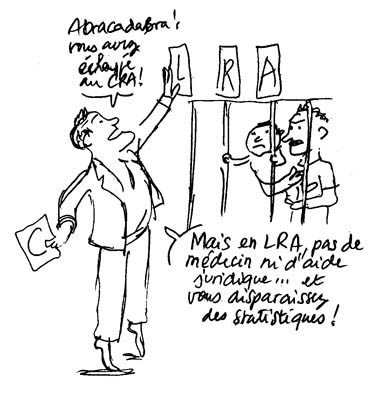 Abracadabra!
vous avez
échappé
au CRA!
L R A
C
Mais en LRA, pas de
médecin ni d'aide
juridique... et
vous disparaissez
des statistiques!